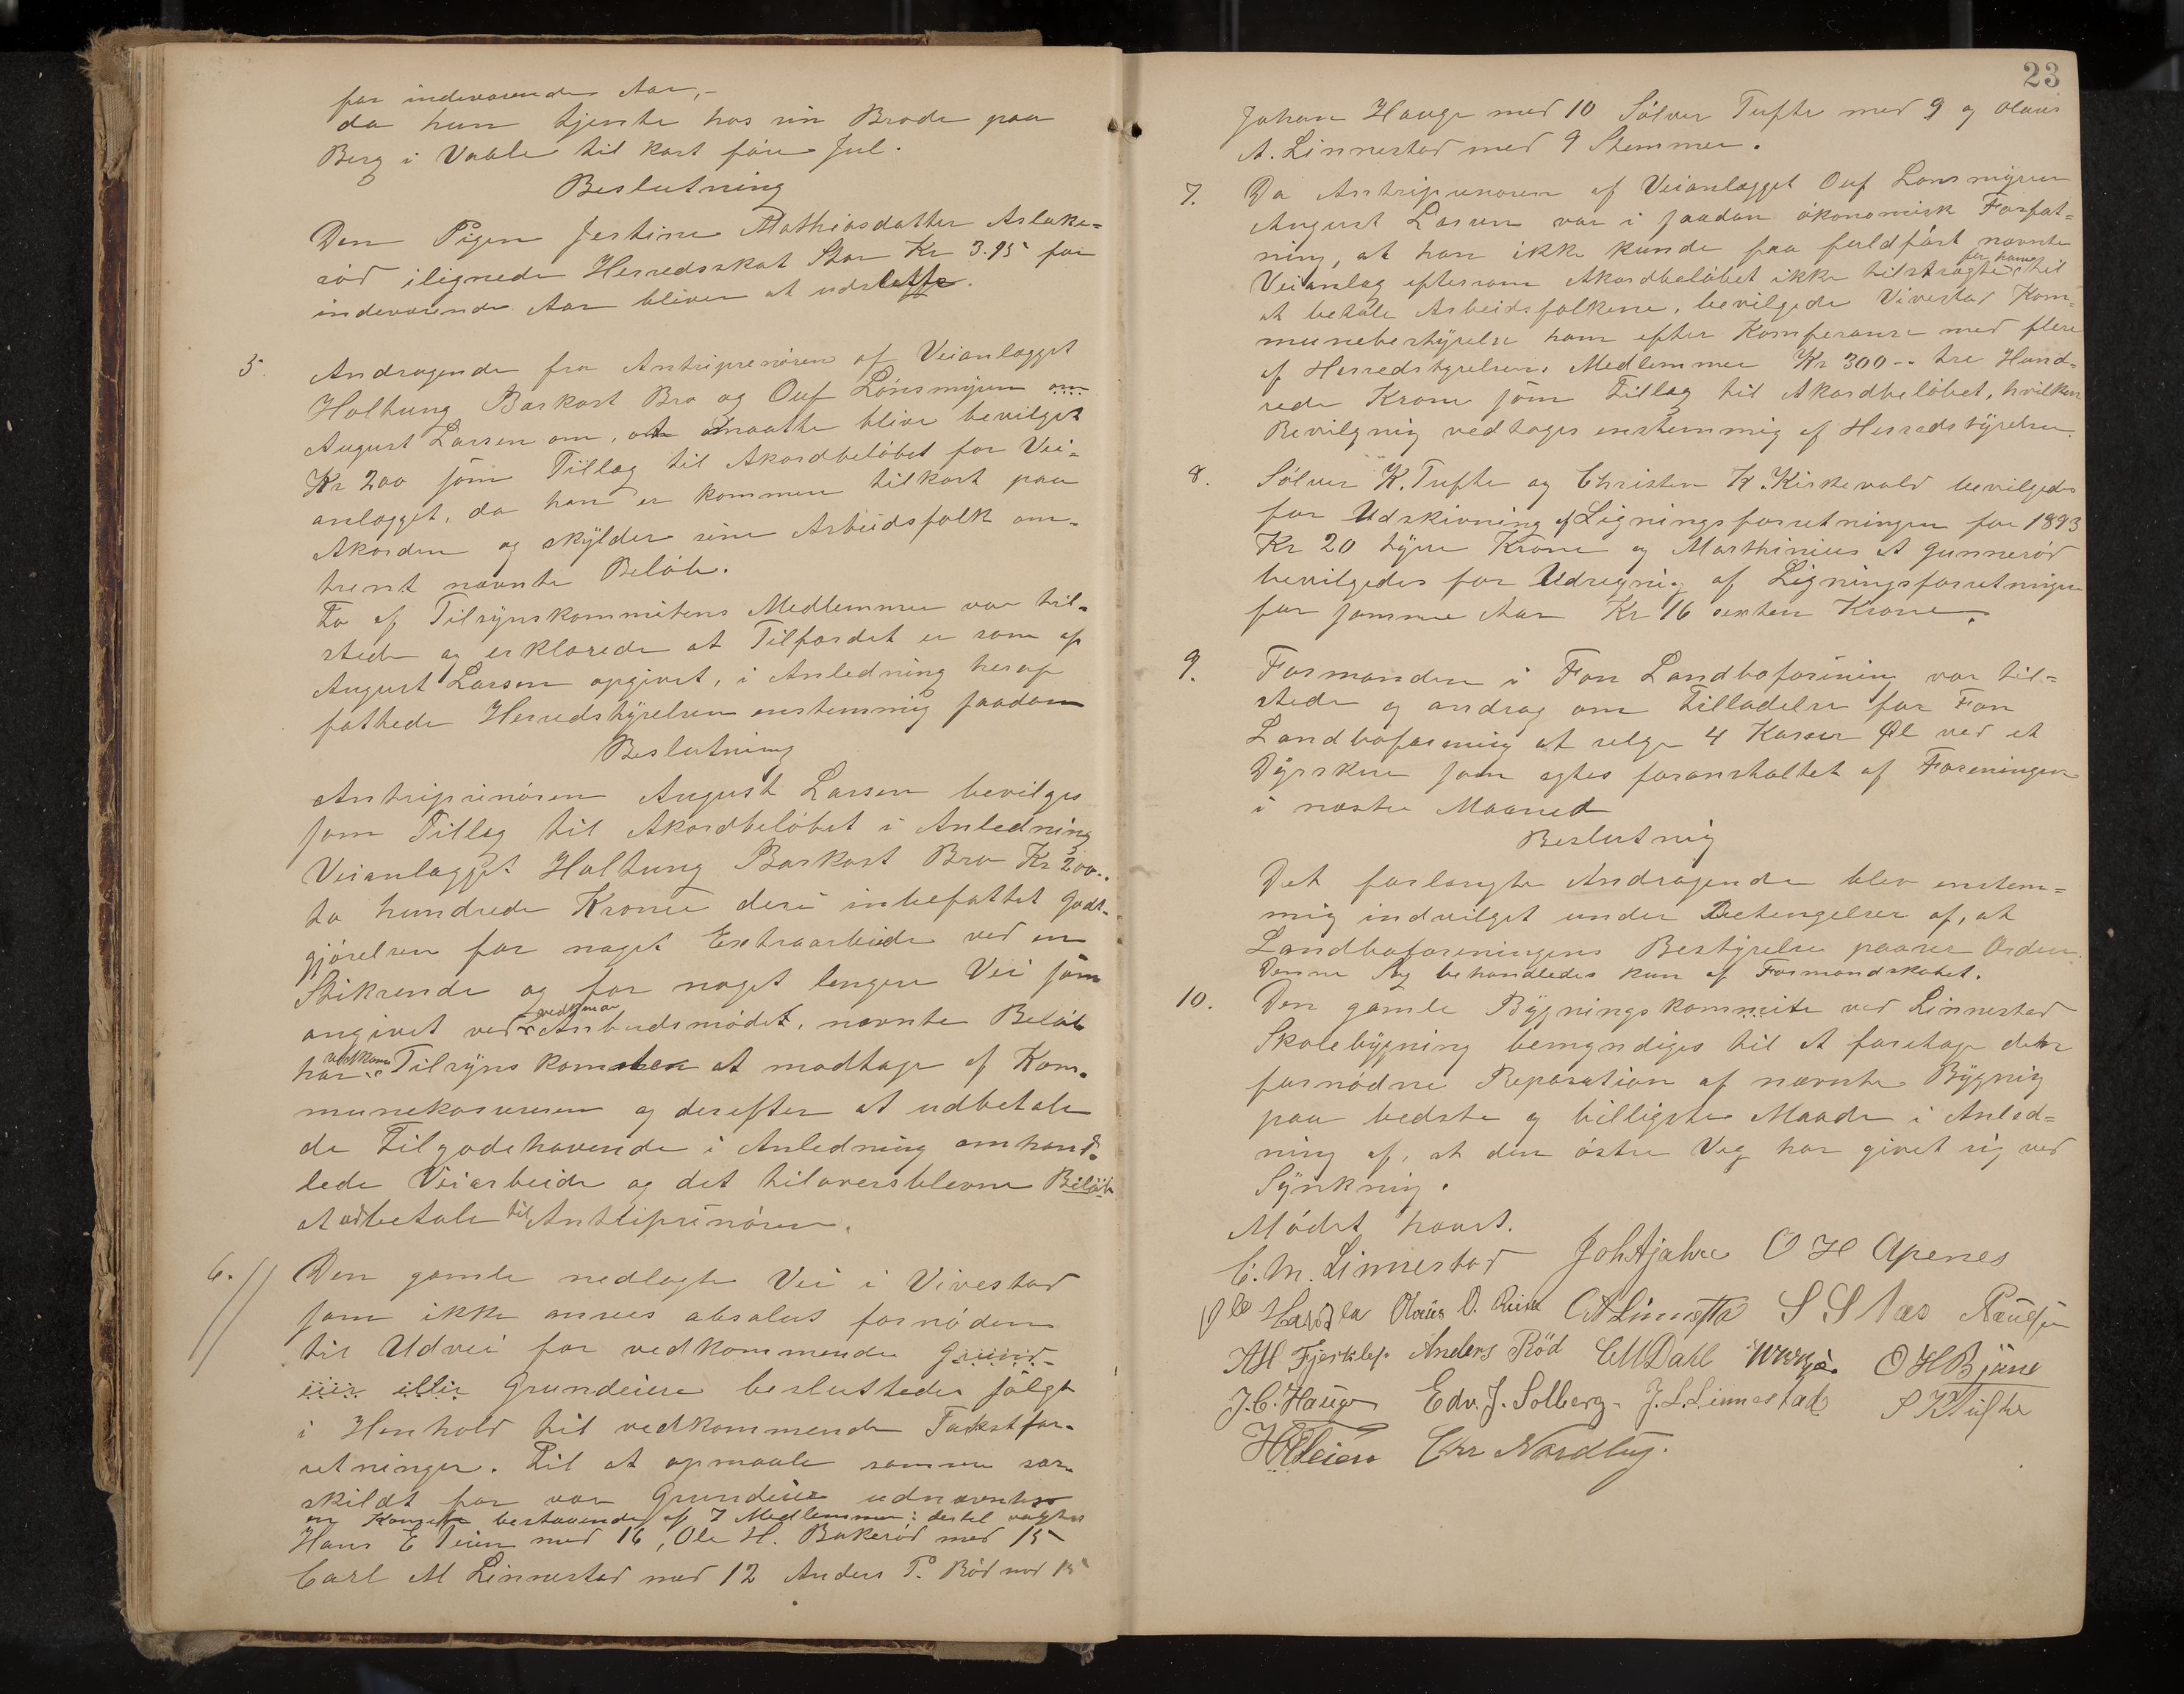 for indeværende Aar,-
da hun tjente hos sin Broder paa
Berg i Vaale til kort före Jul.
Beslutning
Den Pigen Jestine Mathiasdatter Aslake-
röd ilignede Herredsskat Stor Kr 3.95 for
indeværende Aar bliver at udslette.
5. Andragende fra Antreprenören af Veianlægget
Holtung Barkost Bro og Ouf Lönsmyren om
August Larsen om, at maatte blive bevilget
Kr 200 som Tillæg til Akordbelöbet for Vei-
anlægget, da han er kommen tilkort paa
Akorden og skylder sine Arbeidsfolk om-
trent nævnte Belöb.
To af Tilsynskommitens Medlemmer var til-
stede og erklærede at Tilfældet er som af
August Larsen opgivet, i Anledning heraf
fattede Herredstyrelsen enstemmig saadan
Beslutning
Antreprenören August Larsen bevilges
som Tillæg til Akordbelöbet i Anledning
Veianlægget Holtung Barkost Bro Kr 200..
to hundrede Kroner deri inbefattet Godt-
gjörelsen for noget Extraarbeide ved en
Stikrende og for noget lengere Vei som
angivet ved Anbudsmödet, nævnte Belöb
har vedkom. Tilsynskomiteen at modtage af Kom-
munekasereren og derefter at udbetale
de Tilgodehavende i Anledning omhand-
lede Veiarbeide og det tiloversblevne Belöb
at udbetale til Antreprenören.
6. Den gamle nedlagte Vei i Vivestad
som ikke ansees absolut fornöden
til Udvei for vedkommende Grund-
eier eller Grundeiere besluttedes solgt
i Henhold til vedkommende Takstfor-
retninger. Til at opmaale samme sær-
skildt for vær Grundeier udnævntes
en Komite bestaaende af 7 Medlemmer: dertil valgtes
Hans E Teien med 16, Ole H. Bakeröd med 15
Carl M Linnestad med 12 Anders P. Röd med 15
23
Johan Hauge med 10 Sölver Tufte med 9 og Olaus
A. Linnestad med 9 Stemmer.
7. Da Antreprenören af Veianlægget Ouf Lonsmyren
August Larsen var i saadan ökonomisk Forfat-
ning, at han ikke kunde faa fuldfört nævnte
Veianlæg eftersom Akordbelöbet ikke tilstrægte for ham til
at betale Arbeidsfolkene, bevilgede Vivestad Kom-
munebestyrelse ham efter Konferanse med flere
af Herredstyrelsens Medlemmer Kr 300-- tre Hund-
rede Kroner som Tillæg til Akordbelöbet, hvilken
Bevilgning vedtoges enstemmig af Herredstyrelsen.
8. Sölver K. Tufte og Christen K. Kirkevold bevilgedes
for Udskrivning af Ligningsforretningen for 1893
Kr 20 tyve Kroner og Marthinius A Gunneröd
bevilgedes for Udregning af Ligningsforretningen
for samme Aar Kr 16 sexten Kroner.
9. Formanden i Fon Landboforening var til-
stede og androg om Tilladelse for Fon
Landboforening at selge 4 Kasser Öl ved et
Dyrskue som agtes foranstaltet af Foreningen
i næste Maaned
Beslutnig
Det forlangte Andragende blev enstem-
mig indvilget under Betengelser af, at
Landboforeningens Bestyrelse paaser Orden.
Denne Sag behandledes kun af Formandskabet.
10. Den gamle Bygningskommite ved Linnestad
Skolebygning bemyndiges til at foretage den
fornödne Reparation af nævnte Bygnig
paa bedste og billigste Maade i Anled-
ning af, at den östre Væg har givet sig ved
Synknig.
Mödet hævet.
C. M. Linnestad Joh Ajahre O H Apenes
Olaus O. A Linnestad S S Næs
A H Fjerklep Anders Röd C M Dahl O H Bjune
J. C. Hauge Edv. J. Solberg. J. L. Linnestad S K Tufte
H E Teien Chr Nordbÿ.